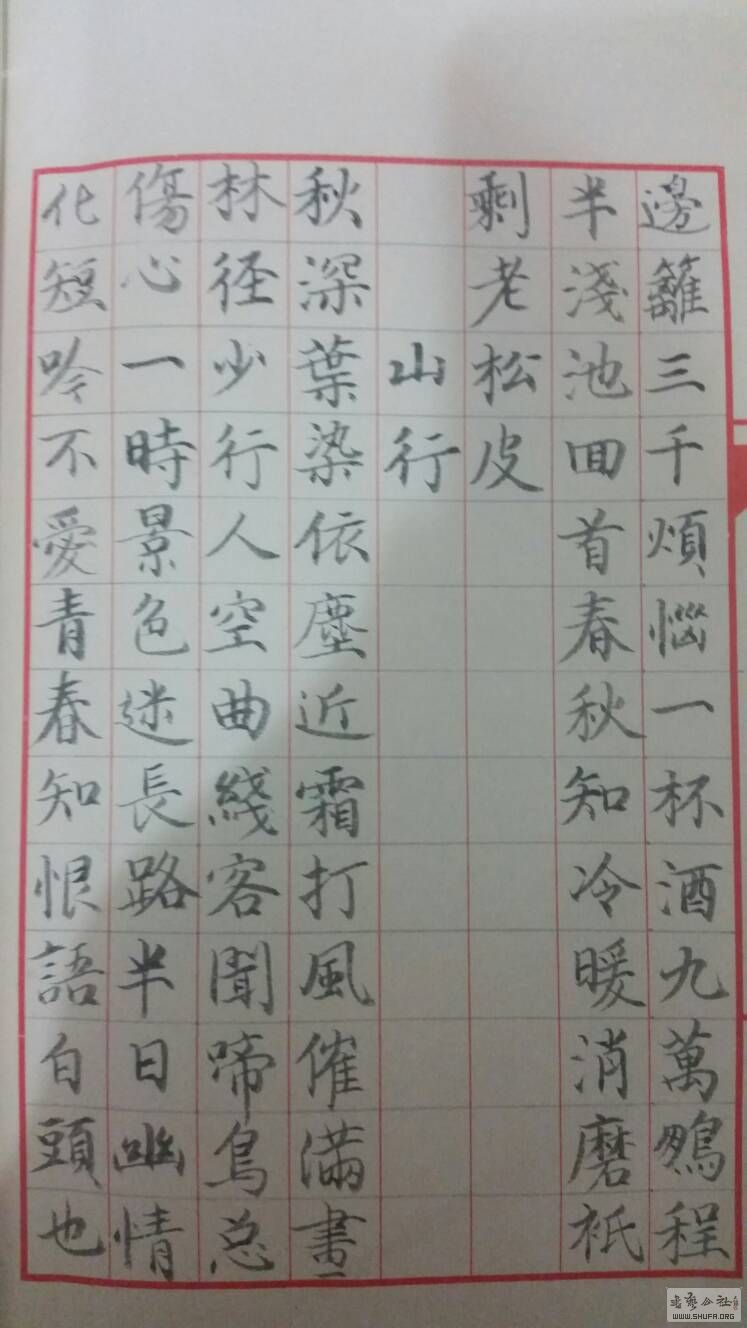 邊籬三千煩惱一杯酒九萬鵬程
半淺池回首春秋知冷暖消磨祇
剩老松皮
山行
秋深葉染依塵近霜打風催滿畫
林径少行人空曲綫客聞啼鳥总
傷心一時景色迷長路半日幽情
化短吟不愛青春知恨語白頭也
WWW.SHUFA.ORG